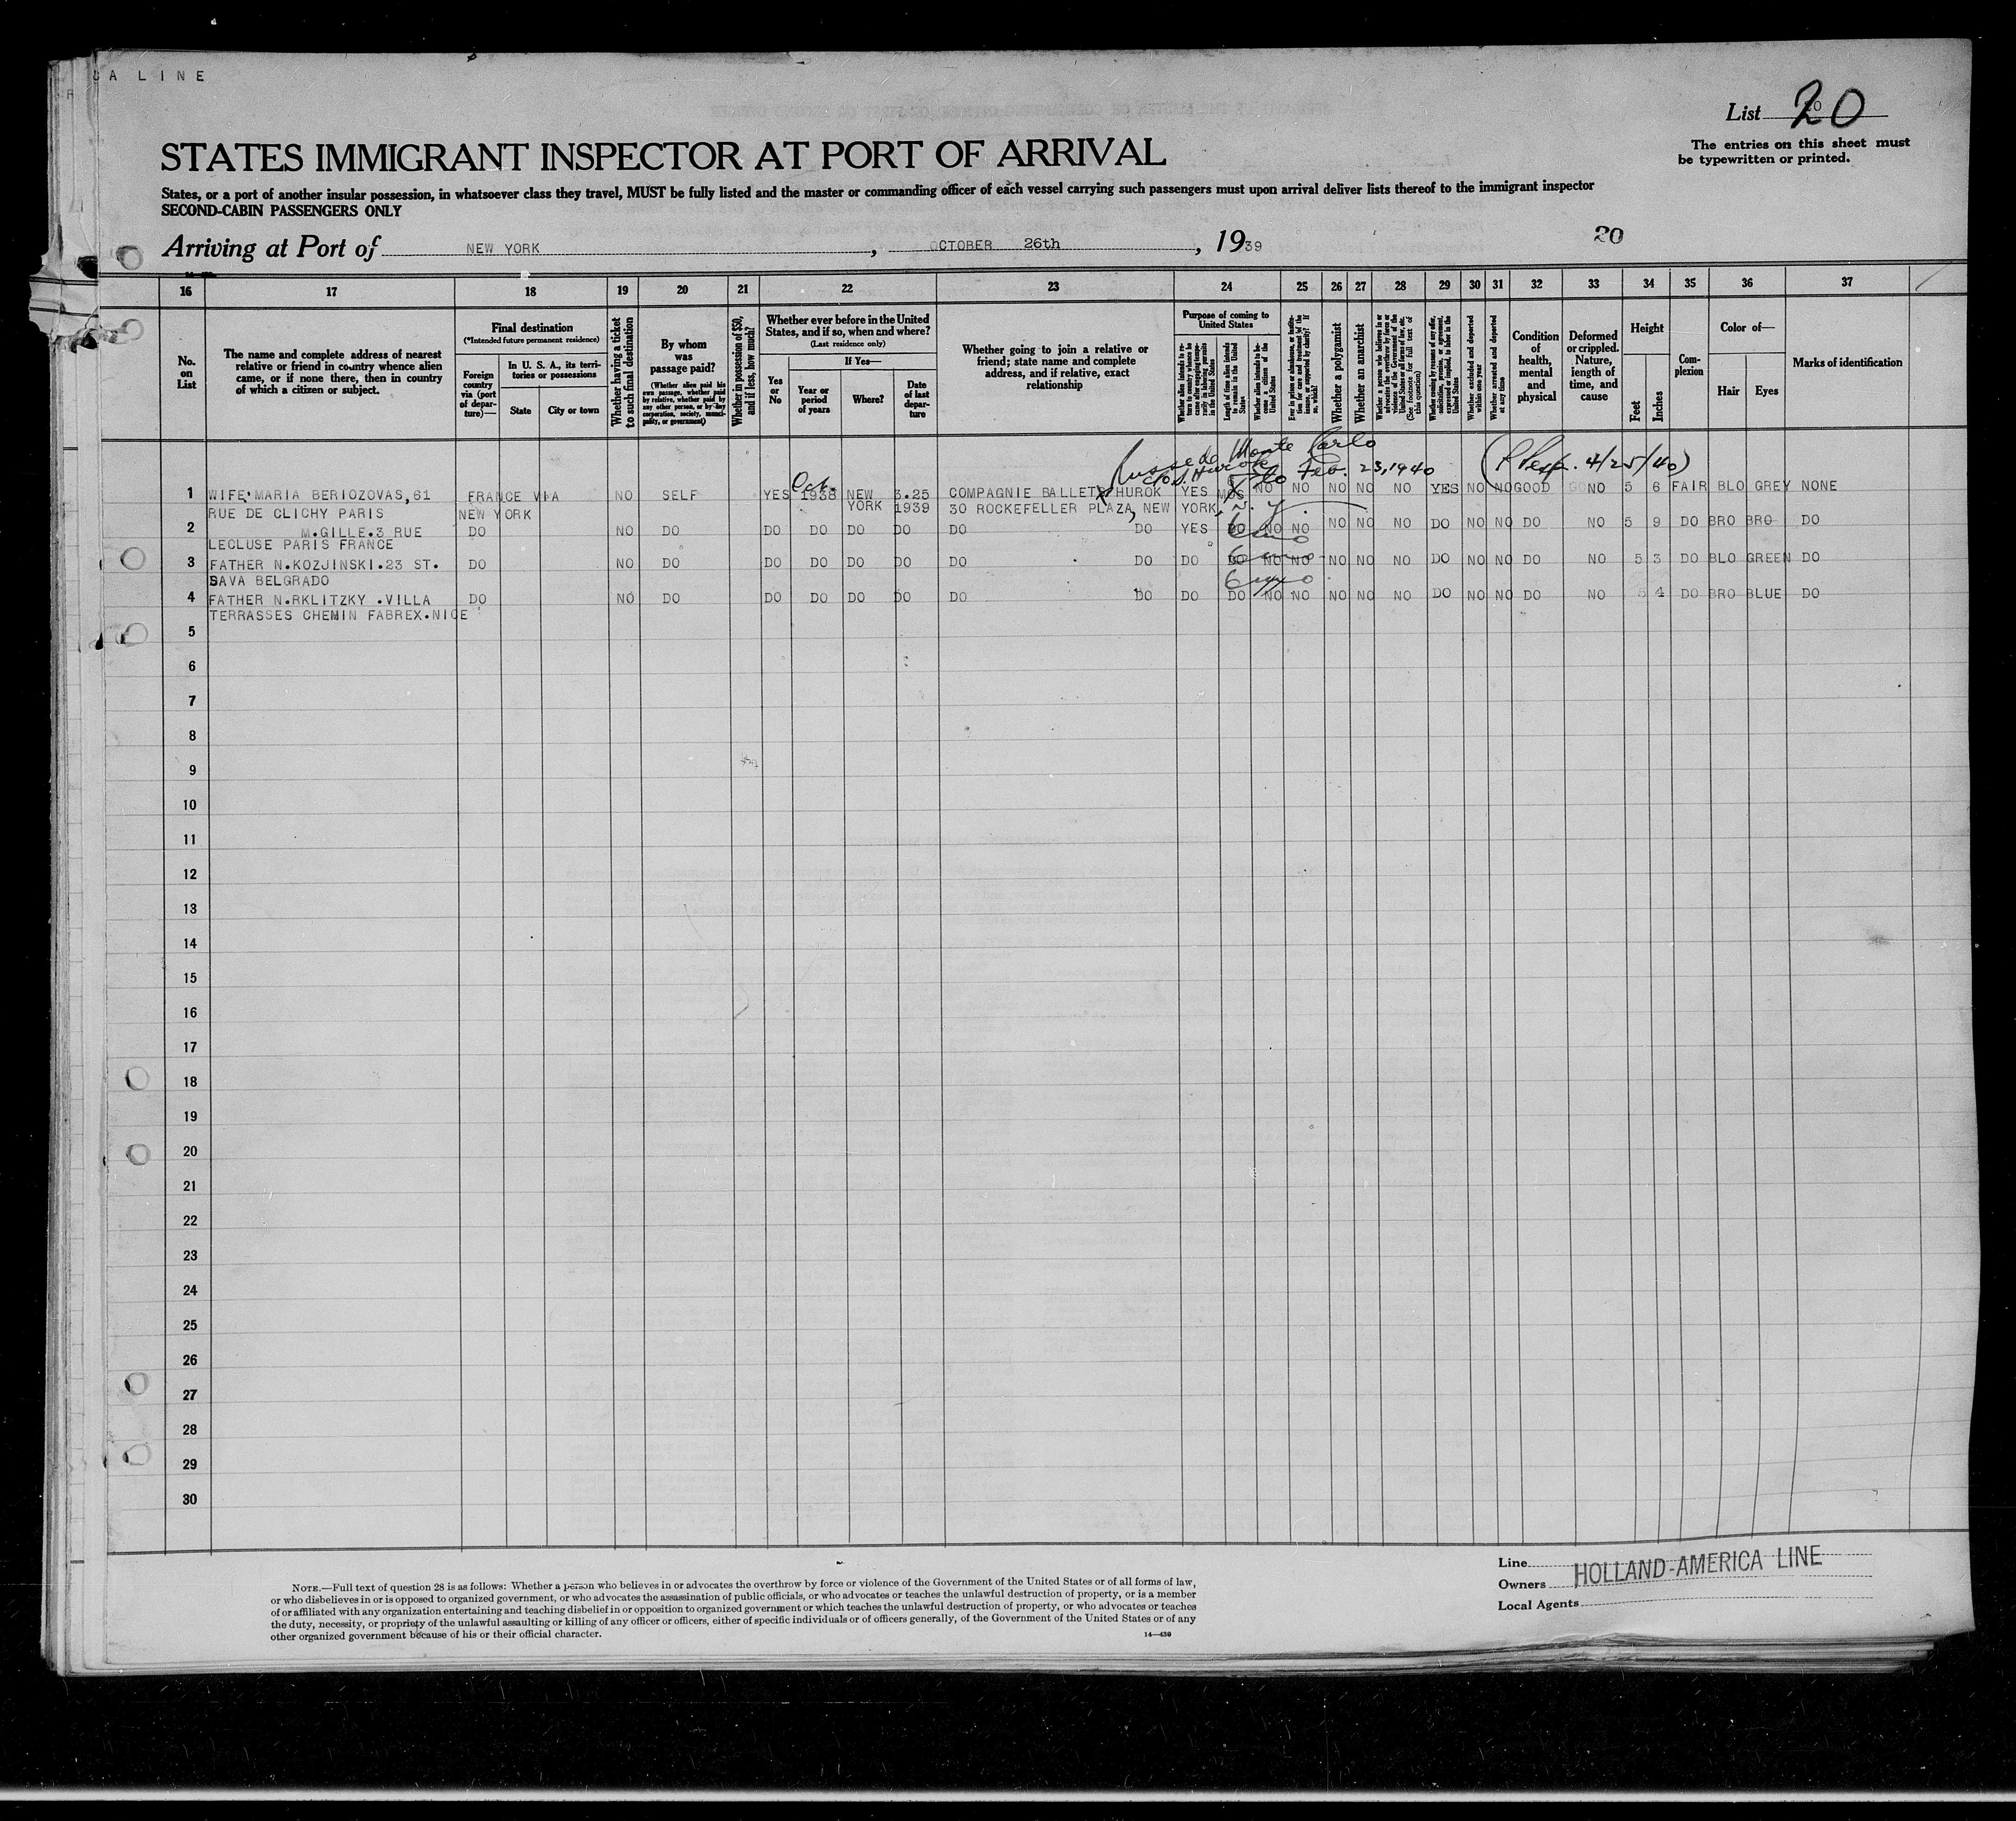 A LINE
List 20
The entries on this sheet must
be typewritten or printed.
STATES IMMIGRANT INSPECTOR AT PORT OF ARRIVAL
States, or a port of another insular possession, in whatsoever class they travel, MUST be fully listed and the master or commanding officer of each vessel carrying such passengers must upon arrival deliver lists thereof to the immigrant inspector
SECOND-CABIN PASSENGERS ONLY
Arriving at Port of NEW YORK, OCTOBER 26th, 1939
20
16 17 18 19 20 21 22 23 24 25 26 27 28 29 30 31 32 33 34 35 36 37
No.
on
List
The name and complete address of nearest
relative or friend in country whence alien
came, or if none there, then in country
of which a citizen or subject.
Final destination
(*Intended future permanent residence)
Foreign
country
via (port
of depar-
ture)—
In U. S. A., its terri-
tories or possessions
State
City or town
Whether having a ticket
to such final destination
By whom
was
passage paid?
(Whether alien paid his
own passage, whether paid
by relative, whether paid by
any other person, or by any
corporation, society, munici-
pality, or government)
Whether in possession of $50,
and if less, how much?
Whether ever before in the United
States, and if so, when and where?
(Last residence only)
Yes
or
No
If Yes—
Year or
period
of years
Where?
Date
of last
depar-
ture
Whether going to join a relative or
friend; state name and complete
address, and if relative, exact
relationship
Purpose of coming to
United States
Length of time alien intends
to remain in the United
States
Whether alien intends to be-
come a citizen of the
United States
Whether a polygamist
Whether an anarchist
(See footnote for full text of
this question)
Whether excluded and deported
within one year
Whether arrested and deported
at any time
Condition
of
health,
mental
and
physical
Deformed
or crippled.
Nature,
length of
time, and
cause
Height
Feet
Inches
Com-
plexion
Color of—
Hair
Eyes
Marks of identification
Russe de Monte Carlo
c/o S. Hurok Feb. 23, 1940
4/25/40)
Oct.
1 WIFE MARIA BERIOZOVAS,61 FRANCE VIA NO SELF YES 1938 NEW 3.25 COMPAGNIE BALLETS HUROK YES MOS NO NO NO NO NO YES NO NO GOOD NO 5 6 FAIR BLO GREY NONE
RUE DE CLICHY PARIS NEW YORK YORK 1939 30 ROCKEFELLER PLAZA, NEW YORK, N. Y.
2 M.GILLE.3 RUE DO NO DO DO DO DO DO DO DO YES DO NO NO NO NO NO DO NO NO DO NO 5 9 DO BRO BRO DO
LECLUSE PARIS FRANCE
3 FATHER N.KOZJINSKI.23 ST. DO NO DO DO DO DO DO DO DO DO DO NO NO NO NO NO DO NO NO DO NO 5 3 DO BLO GREEN DO
SAVA BELGRADO
4 FATHER N.RKLITZKY .VILLA DO NO DO DO DO DO DO DO DO DO DO NO NO NO NO NO DO NO NO DO NO 5 4 DO BRO BLUE DO
TERRASSES CHEMIN FABREX.NICE
5
6
7
8
9
10
11
12
13
14
15
16
17
18
19
20
21
22
23
24
25
26
27
28
29
30
NOTE.—Full text of question 28 is as follows: Whether a person who believes in or advocates the overthrow by force or violence of the Government of the United States or of all forms of law,
or who disbelieves in or is opposed to organized government, or who advocates the assassination of public officials, or who advocates or teaches the unlawful destruction of property, or is a member
of or affiliated with any organization entertaining and teaching disbelief in or opposition to organized government or which teaches the unlawful destruction of property, or who advocates or teaches
the duty, necessity, or propriety of the unlawful assaulting or killing of any officer or officers, either of specific individuals or of officers generally, of the Government of the United States or of any
other organized government because of his or their official character.
14—430
Line
Owners HOLLAND-AMERICA LINE
Local Agents